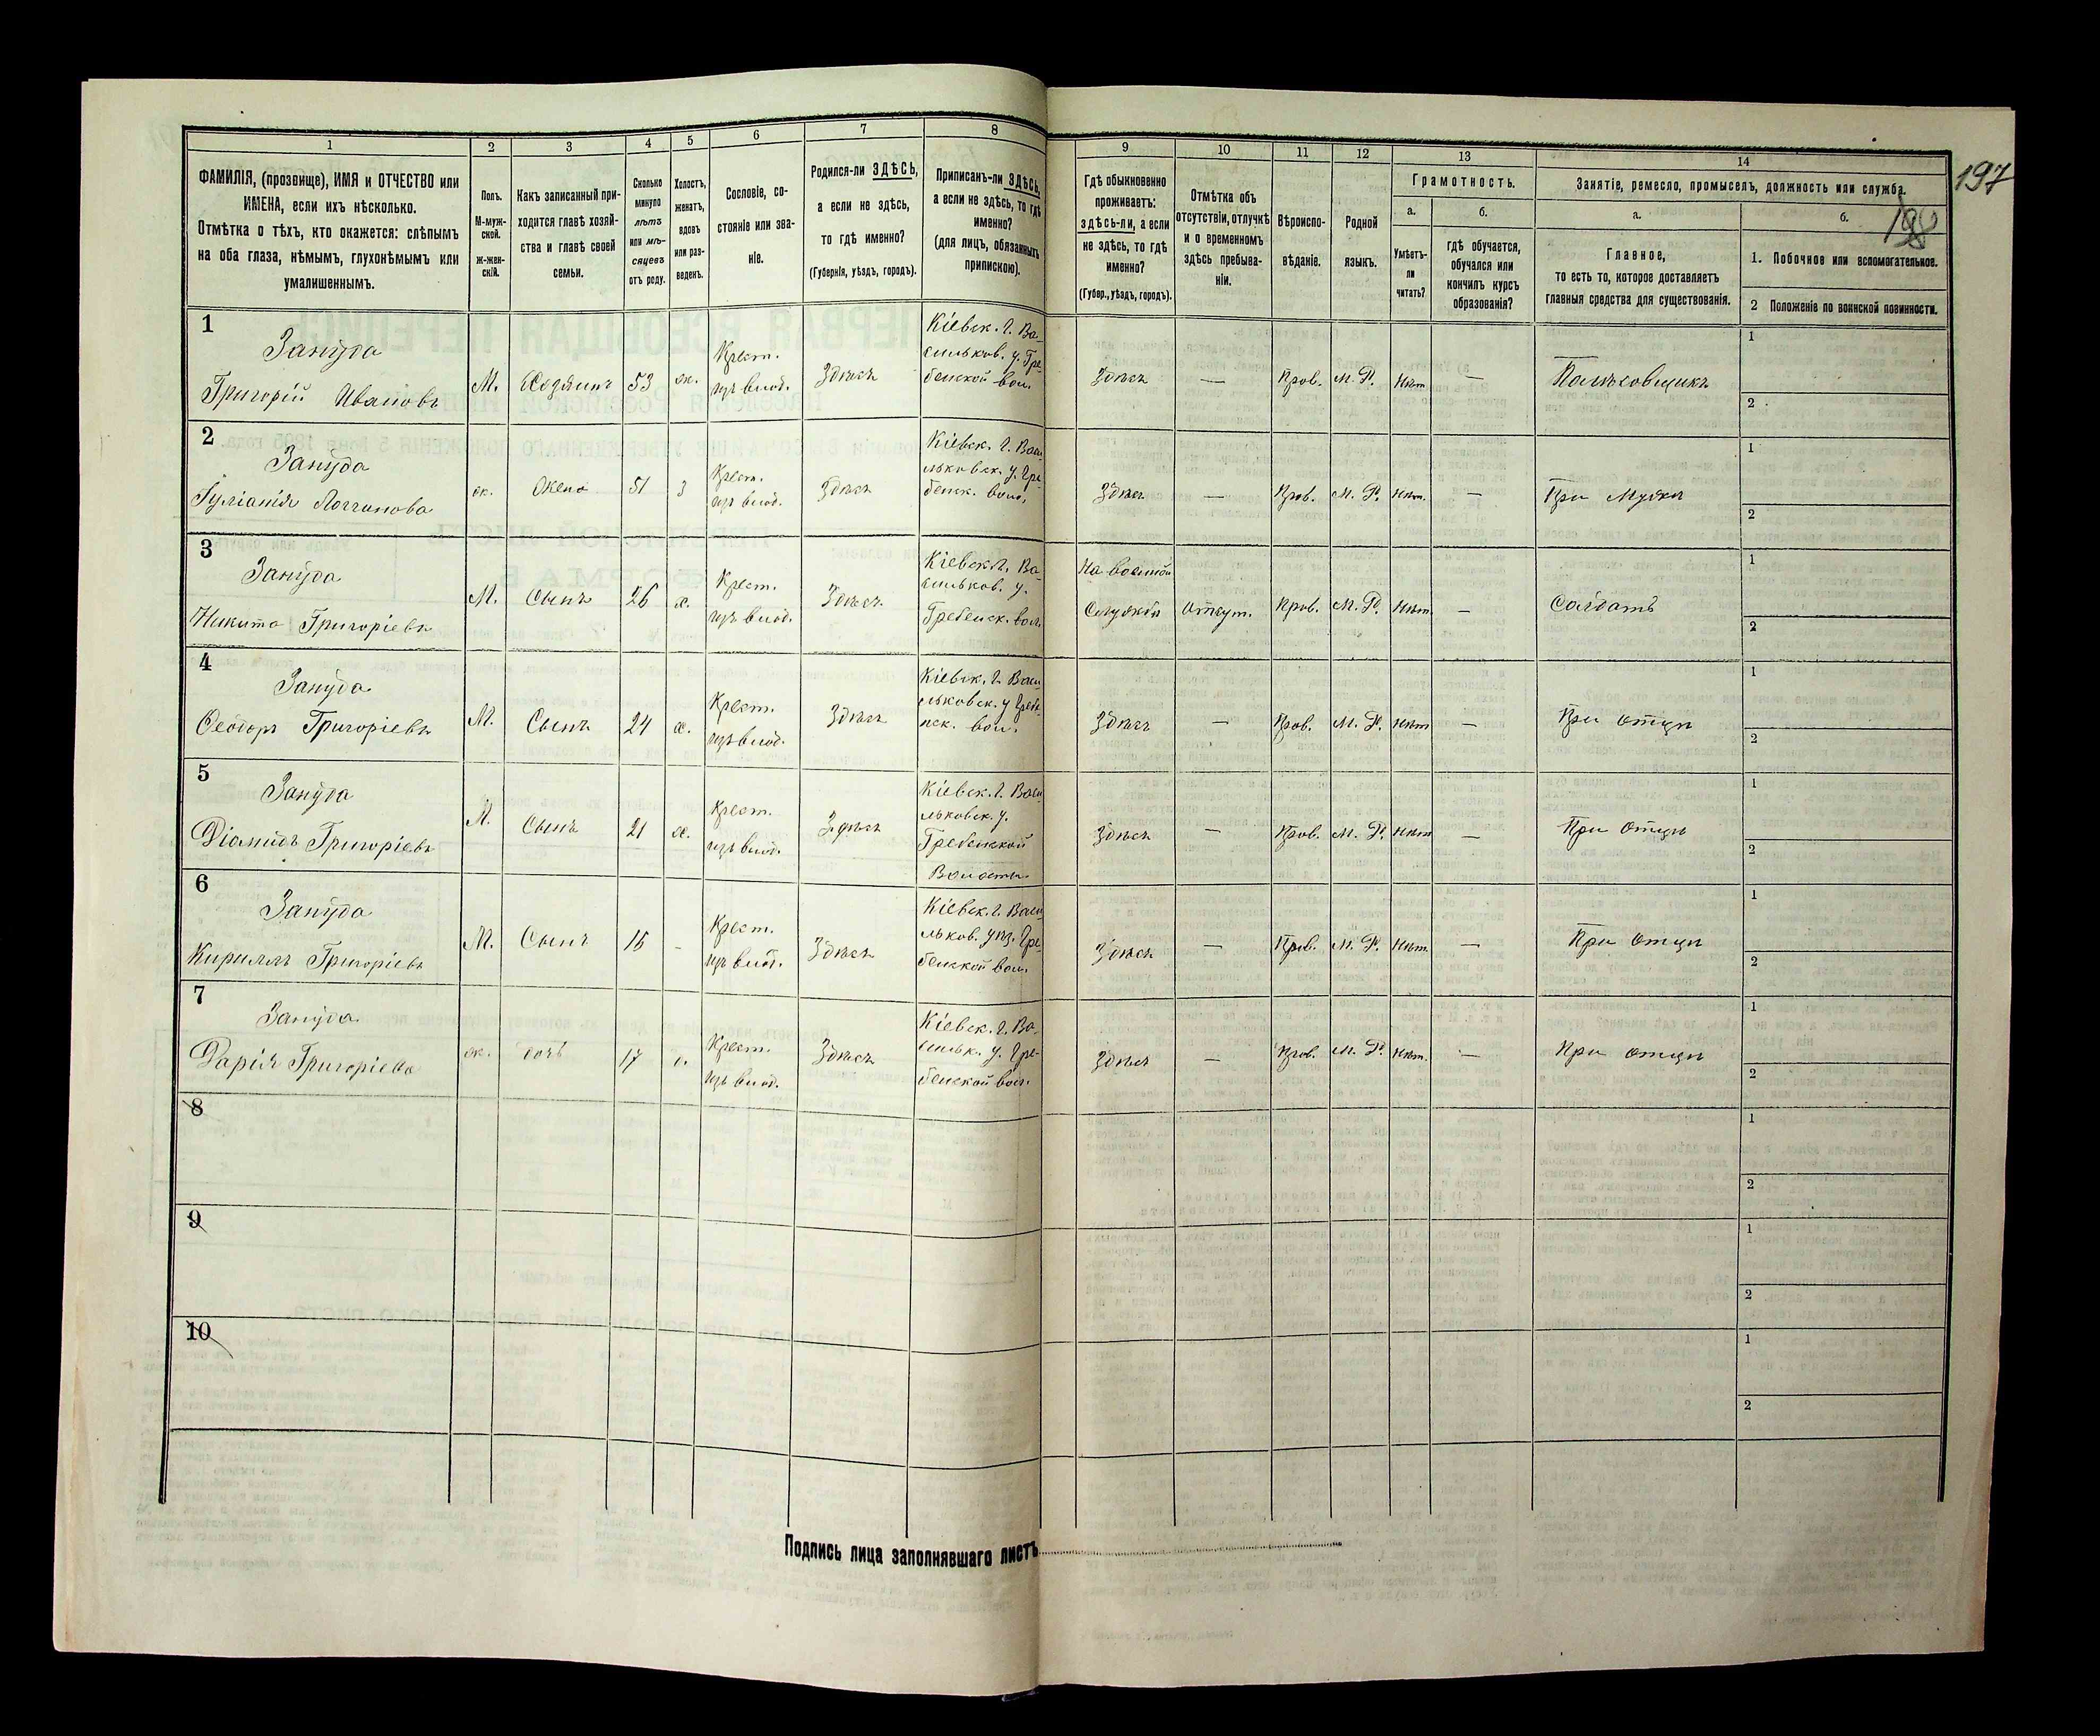 1
2
3
4
5
6
7
8
9
10
11
12
13
14
197
198
ФАМИЛІЯ, (прозвище), ИМЯ и ОТЧЕСТВО или
ИМЕНА, если ихъ нѣсколько.
Отмѣтка о тѣхъ, кто окажется: слѣпымъ
на оба глаза, нѣмымъ, глухонѣмымъ или
умалишеннымъ.
Полъ.
М-муж-
ской.
Ж-жен-
скій.
Какъ записанный при-
ходится главѣ хозяй-
ства и главѣ своей
семьи.
Сколько
минуло
лѣтъ
или мѣ-
сяцевъ
отъ роду.
Холостъ,
женатъ,
вдовъ
или раз-
веденъ.
Сословіе, со-
стояніе или зва-
ніе.
Родился-ли ЗДѢСЬ,
а если не здѣсь,
то гдѣ именно?
(Губернія, уѣздъ, городъ).
Приписанъ-ли ЗДѢСЬ,
а если не здѣсь, то гдѣ
именно?
(для лицъ, обязанныхъ
припискою).
Гдѣ обыкновенно
проживаетъ:
здѣсь-ли, а если
не здѣсь, то гдѣ
именно?
(Губер., уѣздъ, городъ).
Отмѣтка объ
отсутствіи, отлучкѣ
и о временномъ
здѣсь пребыва-
ніи.
Вѣроиспо-
вѣданіе.
Родной
языкъ.
Грамотность.
а.
Умѣетъ-
ли
читать?
б.
гдѣ обучается,
обучался или
кончилъ курсъ
образованія?
Занятіе, ремесло, промыселъ, должность или служба.
а.
Главное,
то есть то, которое доставляетъ
главныя средства для существованія.
б.
1. Побочное или вспомогательное.
2 Положеніе по воинской повинности.
1
Зануда
Григорій Ивановъ
М.
Хозяинъ
53
ж.
Крест.
изъ влад.
Здѣсь
Кіевск. г. Ва-
сильков. у. Гре-
бенской вол.
Здѣсь
—
Прав.
М. Р.
Нѣт
—
Полѣсовщикъ
1
2
2
Зануда
Іуліанія Логгинова
ж.
Жена
51
З
Крест.
изъ влад.
Здѣсь
Кіевск. г. Васи-
льковск. у. Гре-
бенск. вол.
Здѣсь
—
Прав.
М. Р.
Нѣт.
—
При Мужѣ
1
2
3
Зануда
Никита Григоріевъ
М.
Сынъ
26
х.
Крест.
изъ влад.
Здѣсь
Кіевск. г. Ва-
сильков. у.
Гребенск. вол.
На военной
Службѣ
отсут.
Прав.
М. Р.
Нѣт
—
Солдатъ
1
2
4
Зануда
Феодоръ Григоріевъ
М.
Сынъ
24
х.
Крест.
изъ влад.
Здѣсь
Кіевск. г. Васи-
льковск. у Гребе-
нск. вол.
Здѣсь
—
Прав.
М. Р.
Нѣт
—
При отцѣ
1
2
5
Зануда
Діомидъ Григоріевъ
М.
Сынъ
21
х.
Крест.
изъ влад.
Здѣсь
Кіевск. г. Васи-
льковск. у.
Гребенской
Волости
Здѣсь
—
Прав.
М. Р.
Нѣт
—
При Отцѣ
1
2
6
Зануда
Кириллъ Григоріевъ
М.
Сынъ
15
-
Крест.
изъ влад.
Здѣсь
Кіевск. г. Васи-
льков. уѣз. Гре-
бенской вол.
Здѣсь
—
Прав.
М. Р.
Нѣт.
—
При Отцѣ
1
2
7
Зануда
Дарія Григоріева
ж.
дочь
17
Крест.
изъ влад.
Здѣсь
Кіевск. г. Ва-
сильк. у. Гре-
бенской вол.
Здѣсь
—
Прав.
М. Р.
Нѣт.
—
При отцѣ
1
2
8
1
2
9
1
2
10
1
2
Подпись лица заполнявшаго листъ